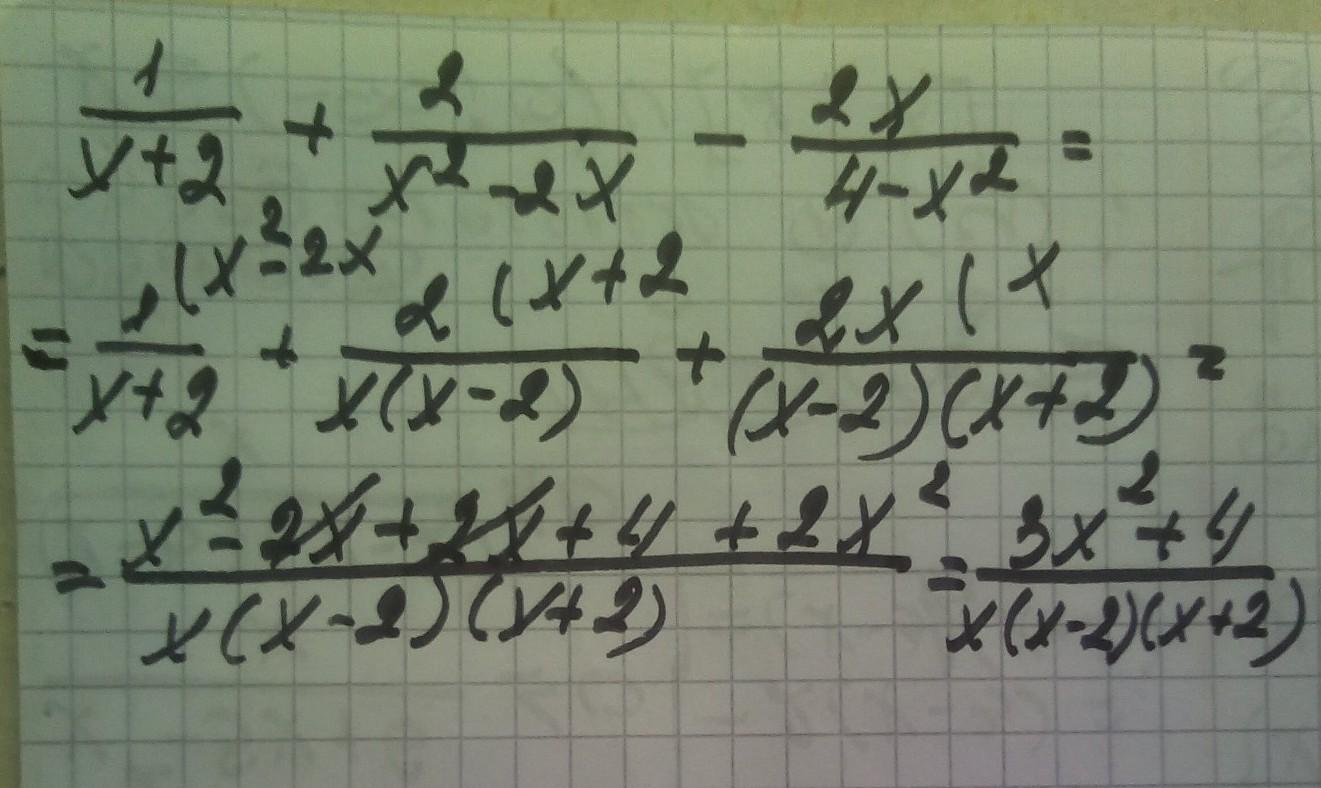 1/(x+2) + 2/(x²-2x) - 2x/(4-x²) =
= 1 (x²-2x/(x+2) + 2 (x+2/(x(x-2)) + 2x (x/((x-2)(x+2)) =
= (x²-2x+2x+4+2x²)/(x(x-2)(x+2)) = (3x²+4)/(x(x-2)(x+2))